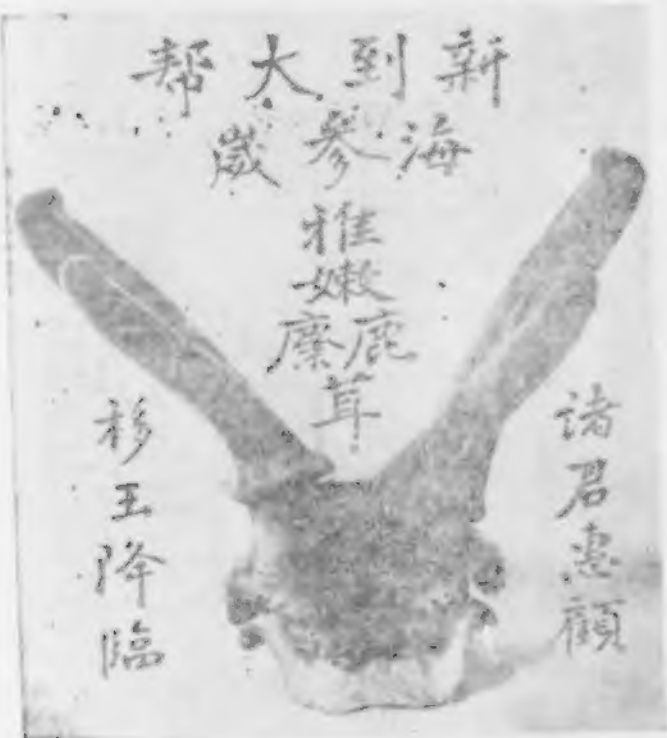 新到大帮
海參崴
雅
嫩
鹿麋
茸
諸君惠顧
移玉降臨